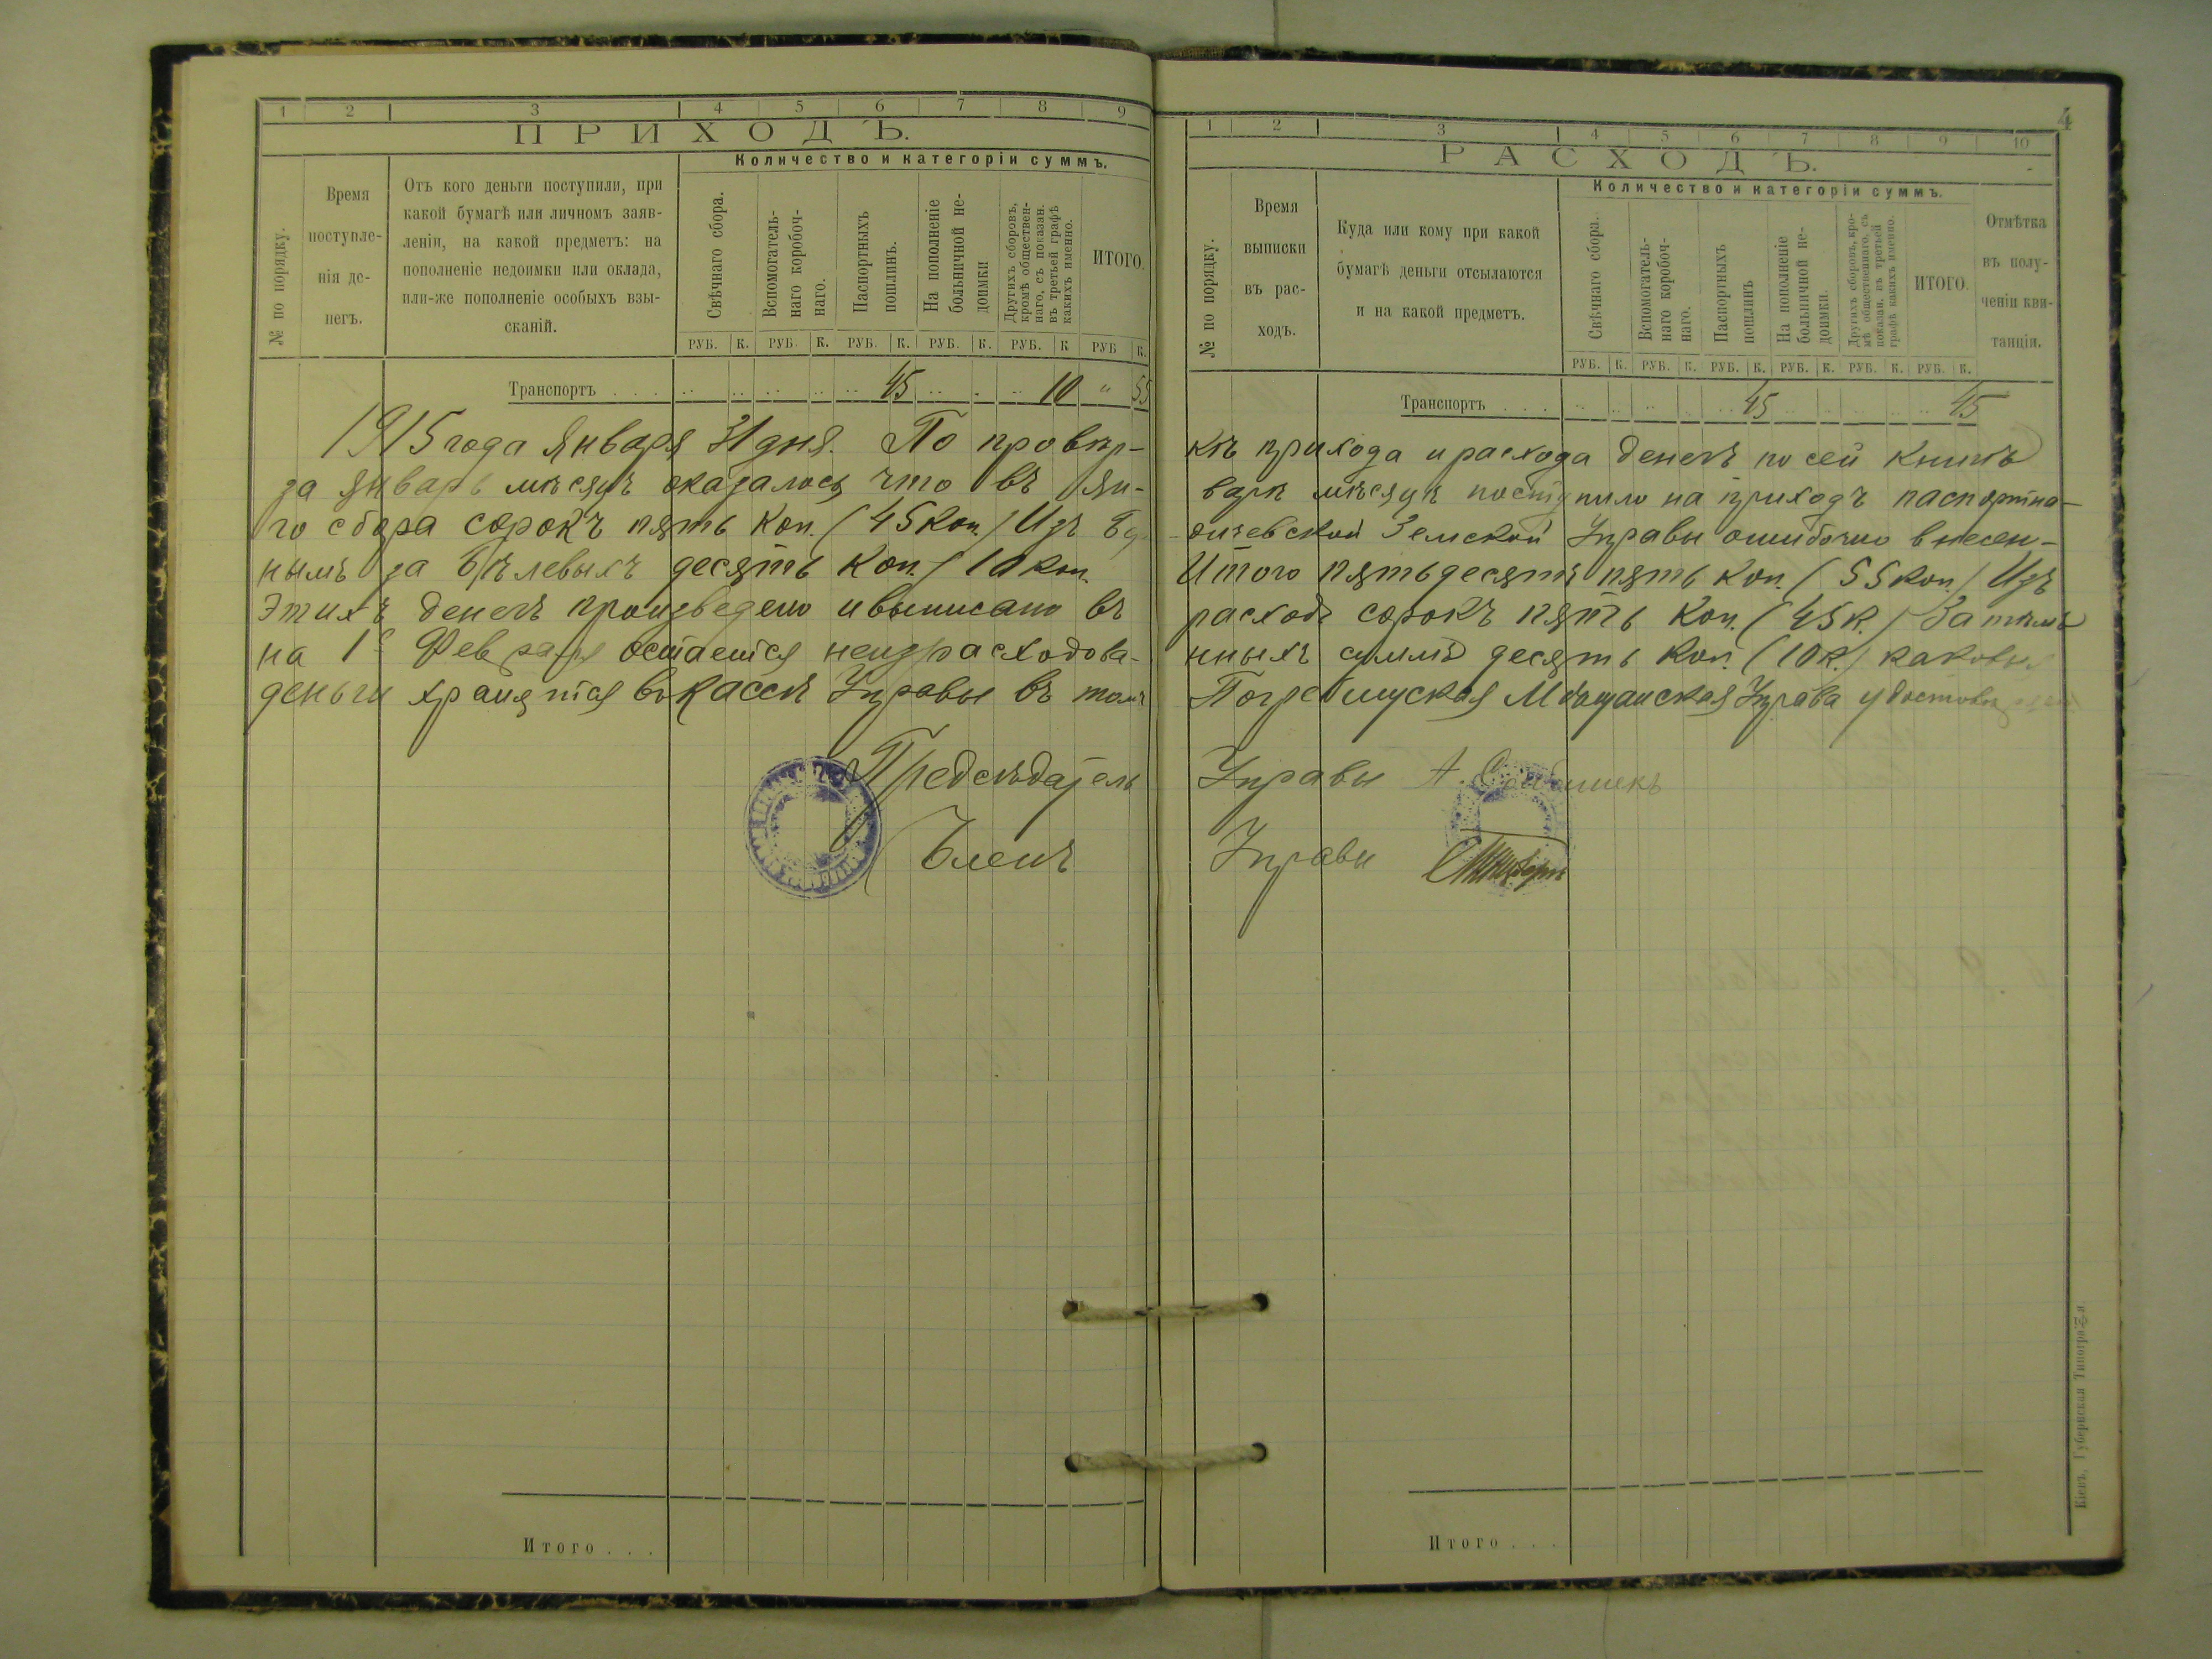 1 2 3 4 5 6 7 8 9
ПРИХОДЪ.
Количество и категоріи суммъ.
№ по порядку.
Время
поступле-
нія де-
негъ.
Отъ кого деньги поступили, при
какой бумагѣ или личномъ заяв-
леніи, на какой предметъ: на
пополненіе недоимки или оклада,
или-же пополненіе особыхъ взы-
сканій.
Свѣчнаго сбора.
Вспомогатель-
наго коробоч-
наго.
Паспортныхъ
пошлинъ.
На пополненіе
больничной не-
доимки
Другихъ сборовъ,
кромѣ обществен-
наго, съ показан.
въ третьей графѣ
какихъ именно.
ИТОГО.
РУБ. К. РУБ. К. РУБ. К. РУБ. К. РУБ. К РУБ К.
Транспортъ . . . 45 10 " 55
1915 года Января 31 дня. По провѣр-
за Январь мѣсяцъ оказалось что въ Ян-
го сбора сорокъ пять коп. (45 коп.) Изъ Бер
нымъ за бѣлевыхъ десять коп. (10 коп.
Этихъ денегъ произведено и выписано въ
на 1е Февраля остается неизрасходова-
деньги хранятся въ кассѣ Управы въ томъ
Предсѣдатель
Членъ
Итого . . .
4
1 2 3 4 5 6 7 8 9 10
РАСХОДЪ.
Количество и категоріи суммъ.
№ по порядку.
Время
выписки
въ рас-
ходъ.
Куда или кому при какой
бумагѣ деньги отсылаются
и на какой предметъ.
Свѣчнаго сбора.
Вспомогатель-
наго коробоч-
наго.
Паспортныхъ
пошлинъ
На пополненіе
больничной не-
доимки.
Другихъ сборовъ, кро-
мѣ общественнаго, съ
показан. въ третьей
графѣ какихъ именно.
ИТОГО.
Отмѣтка
въ полу-
ченіи кви-
танціи.
РУБ. К. РУБ. К. РУБ. К. РУБ. К. РУБ. К. РУБ. К.
Транспортъ . . . 45 45
кѣ прихода и расхода денегъ по сей книгѣ
варѣ мѣсяцѣ поступило на приходъ паспортна-
дичевской Земской Управы ошибочно внесен-
Итого пятьдесятъ пять коп. (55 коп.) Изъ
расходъ сорокъ пять коп. (45 к.) Затѣмъ
нныхъ суммъ десять коп. (10 к.) каковыя
Погребищуская Мѣщанская Управа удостовѣряетъ
Управы А.
Управы
Итого . . .
Кіевъ, Губернская Типографія.